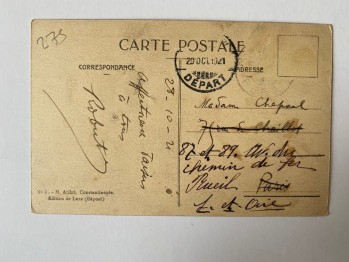 275
CARTE POSTALE
CORRESPONDANCE
ADRESSE
29 OCT 1921
DÉPART
28-10-21
Affectueux
à tous
Robert
Madame Chapuel
87 et 89. Av. du
chemin de fer
Rueil Paris
S. et Oise
Constantinople.
Edition de Luxe (Déposé)